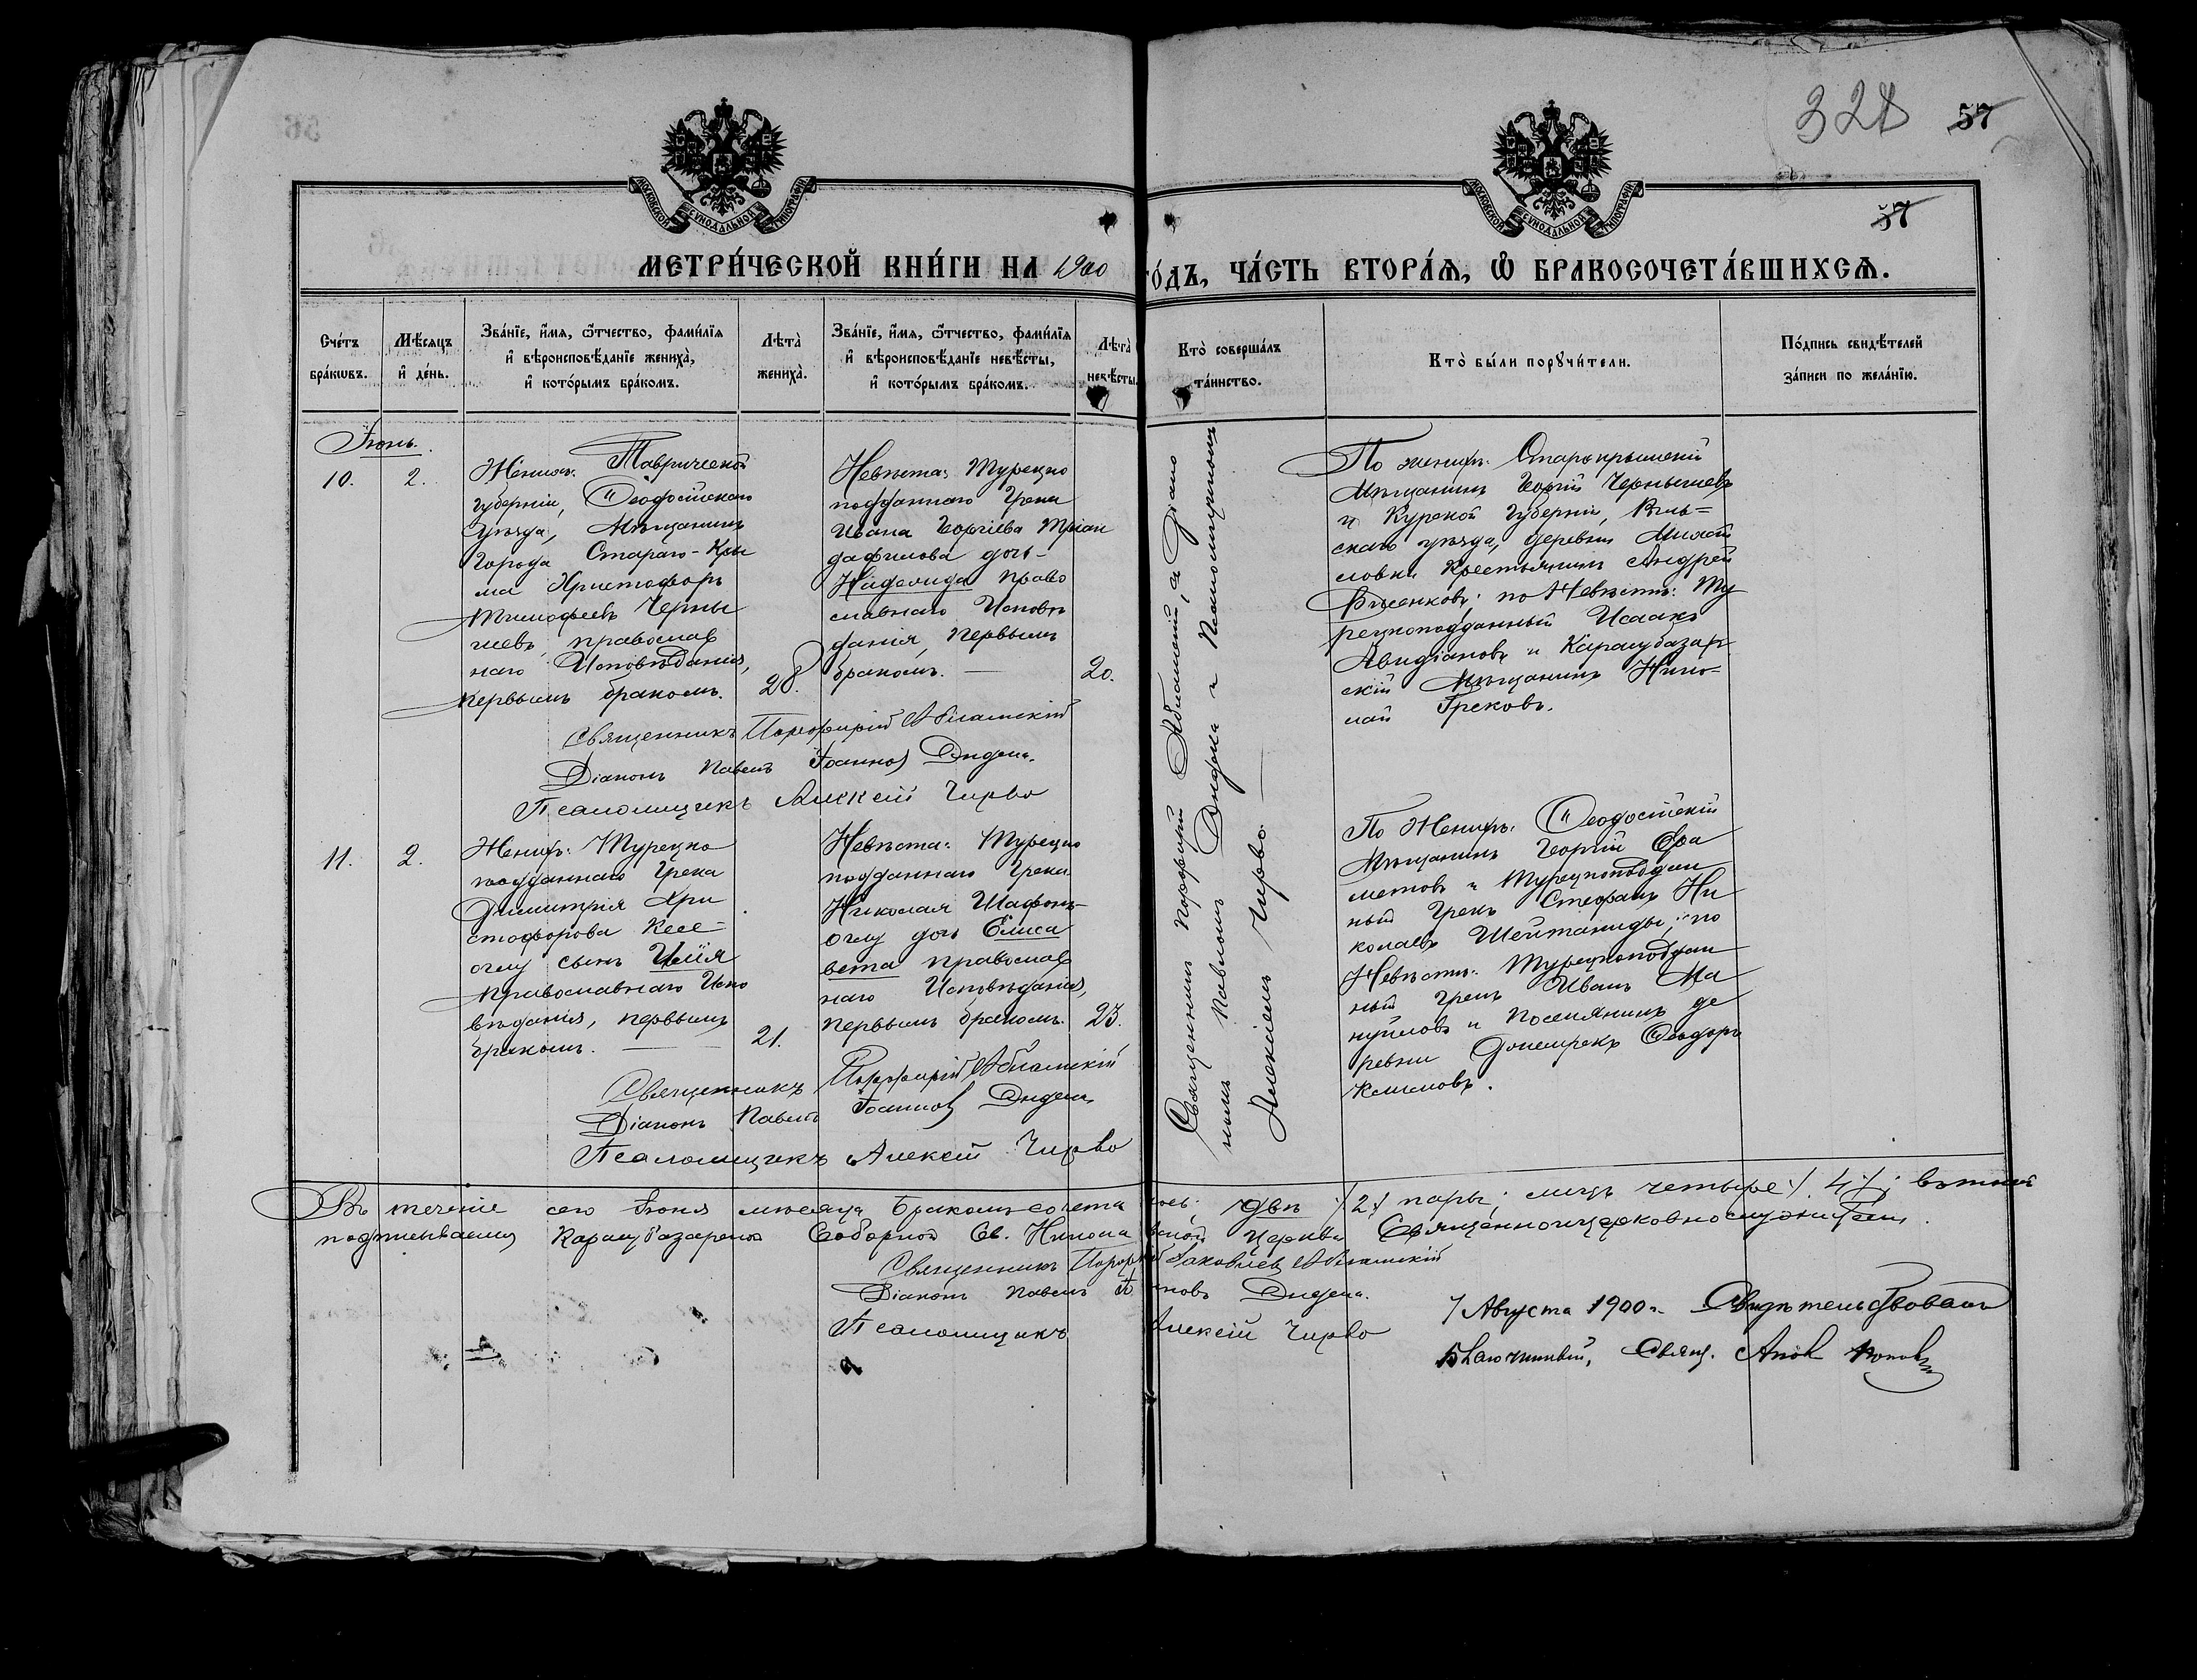 328 57
МОСКОВСКОЙ СѴНОДАЛЬНОЙ ТИПОГРАФІИ
МОСКОВСКОЙ СѴНОДАЛЬНОЙ ТИПОГРАФІИ
57
МЕТРИ́ЧЕСКОЙ КНИ́ГИ НА 1900 ГО́ДЪ, ЧА́СТЬ ВТОРА́Я, Ѡ БРАКОСОЧЕТА́ВШИХСЯ.
Сче́тъ
бра́кѡвъ.
Мѣ́сяцъ
и҆ де́нь.
Зва́нїе, и҆́мя, ѻ҆́тчество, фами́лїя
и҆ вѣроисповѣ́данїе жениха̀,
и҆ кото́рымъ бра́комъ.
Лѣта̀
жениха̀.
Зва́нїе, и҆́мя, ѻ҆́тчество, фами́лїя
и҆ вѣроисповѣ́данїе невѣ́сты,
и҆ кото́рымъ бра́комъ.
Лѣта̀
невѣ́сты.
Кто̀ соверша́лъ
та́инство.
Кто̀ бы́ли порꙋчи́тели.
По́дпись свидѣ́телей
за́писи по жела́нїю.
Іюнь.
10.
2.
Женихъ: Таврической
губерніи, Ѳеодосійскаго
уѣзда, Мѣщанинъ
города Стараго-Кры
ма Христофоръ
Тимофеевъ Черны
шевъ, православ
наго Исповѣданія,
первымъ бракомъ.
28.
Невѣста: Турецко
подданнаго Грека
Ивана Георгіева Тріан
дафилова дочь-
Надежда право
славнаго Исповѣ
данія, первымъ
бракомъ. —
20.
Священникъ Порфирій Абламскій
Діаконъ Павелъ Іоанновъ Дидена.
Псаломщикъ Алексій Чирво
По женихѣ: Старокрымскій
Мѣщанинъ Георгій Чернышевъ
и Курской губерніи,
скаго уѣзда, деревни
словки Крестьянинъ Андрей
по Невѣстѣ: Ту
рецкоподданный Исаакъ
Авидіановъ и Карасубазар
скій Мѣщанинъ Нико-
лай Грековъ.
Священникъ Порфирій Абламскій, съ Діако
номъ Павломъ Дидена и Псаломщикомъ
Алексіемъ Чирво.
11.
2.
Женихъ: Турецко
подданнаго Грека
Димитрія Хри
стофорова Кесе-
оглу сынъ Илія
православнаго Испо
вѣданія, первымъ
бракомъ. —
21.
Невѣста: Турецко
подданнаго Грека
Николая Шафонъ-
оглу дочь Елиса
вета православ
наго Исповѣданія,
первымъ бракомъ.
23.
Священникъ Порфирій Абламскій
Діаконъ Павелъ Іоанновъ Дидена
Псаломщикъ Алексій Чирво
По Женихѣ: Ѳеодосійскій
Мѣщанинъ Георгій
и Турецкоподдан
ный Грекъ Стефанъ Ни
колаевъ Шейтаниды; по
Невѣстѣ: Турецкоподдан
ный Грекъ Иванъ Ма
нуйловъ и Поселянинъ де
ревни Ѳеодоръ
Въ теченіе сего Іюня мѣсяца бракомъ сочета лось двѣ /2/ пары; лицъ четыре /4/; въ томъ
подписываемъ Карасубазарской Соборной Св. Никола евской Церкви Священноцерковнослужители.
Священникъ Порфирій Іаковлев Абламскій
Діаконъ Павелъ Іоанновъ Дидена.
Псаломщикъ Алексій Чирво
7 Августа 1900 г. Свидѣтельствовалъ
Благочинный, Свящ.